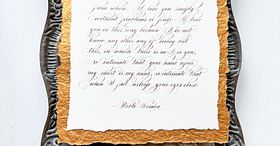 from where. I love you simply
without problems or pride: I love
you in this way because I do not
know any other way of loving but
this, in which there is no I or you,
so intimate that your hand upon
my chest is my hand, so intimate that
when I fall asleep your eyes close.
~ Pablo Neruda